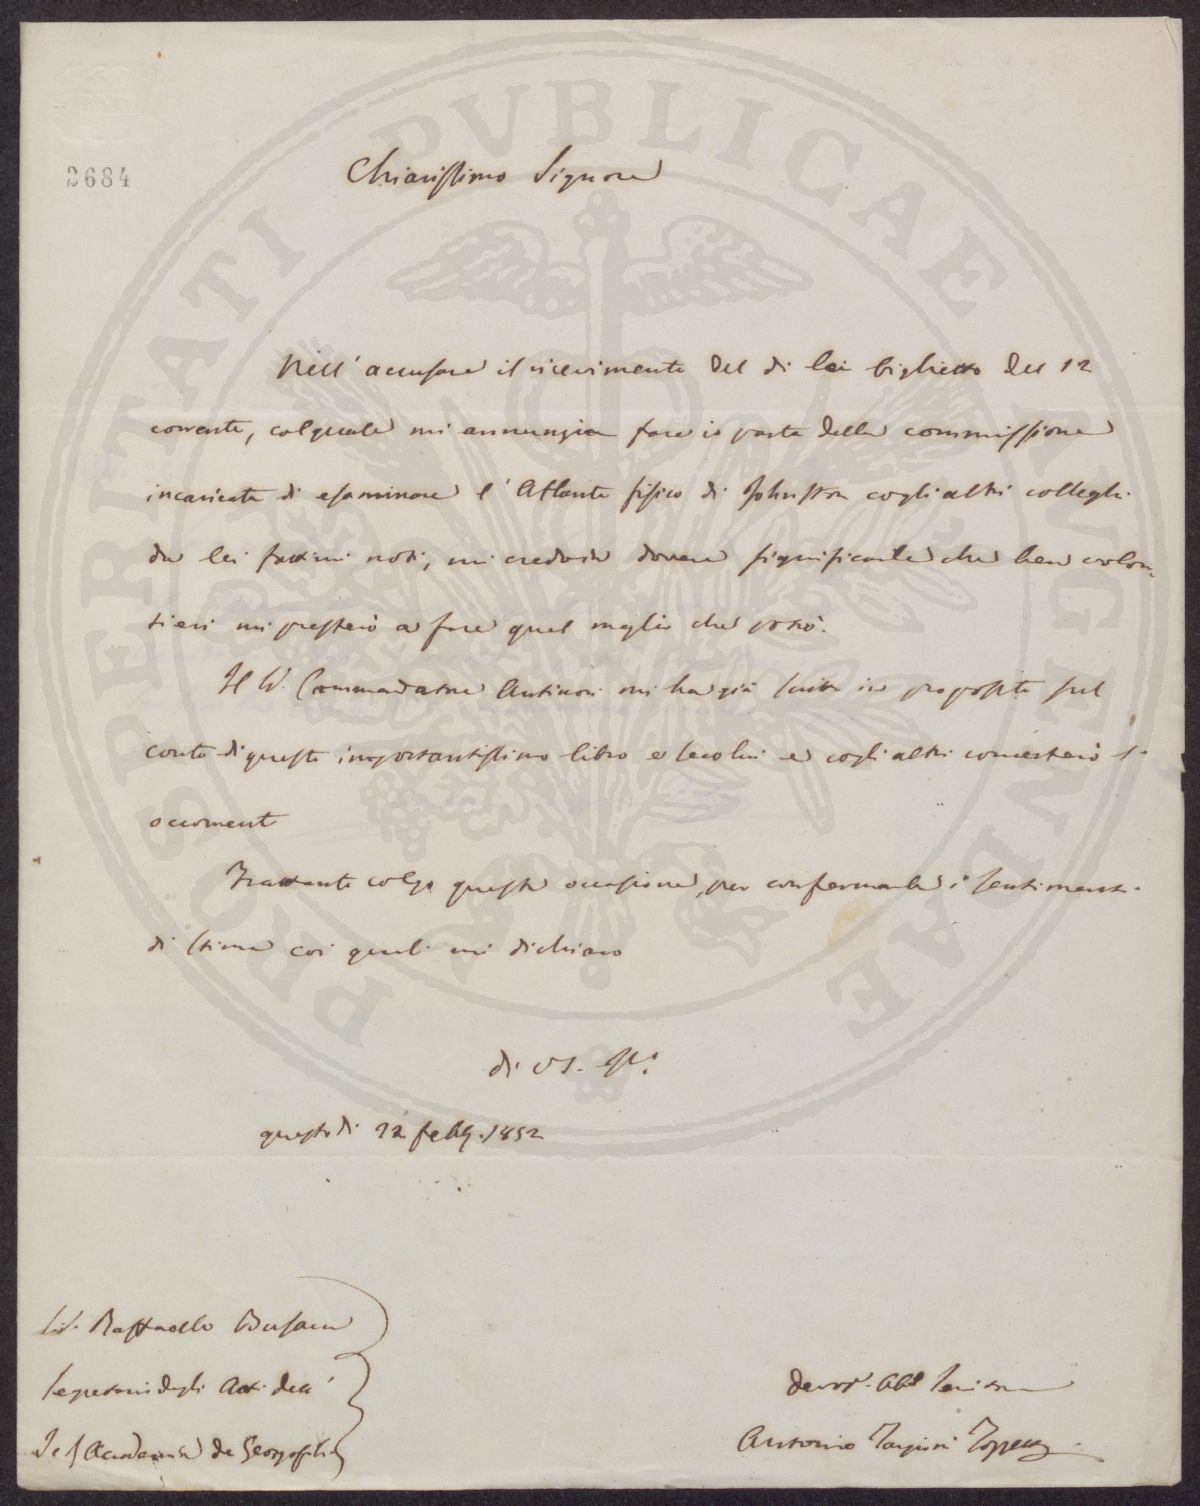 PROSPERITATI PUBLICAE AUGENDAE
2684
Chiarissimo Signore
Nell'accusare il ricevimento del di lei biglietto del 12
corrente, col quale mi annunzia fare io parte della commissione
incaricata di esaminare l'Atlante fisico di Johnston cogli altri colleghi
da lei fattimi noti, mi credo in dovere significarle che ben volon
tieri mi presterò a fare quel meglio che potrò.
Il Sig. Commendatore Antinori mi ha già scritto in proposito sul
conto di questo importantissimo libro e seco lui e cogli altri concerterò l'
occorrente
Frattanto colgo questa occasione per confermarle i sentimenti
di stima coi quali mi dichiaro
di VS. Ill.
questo dì 22 febb. 1852
Sig. Raffaello Busacca
Segretario degli Atti dell'
I e R Accademia de Georgofili
Devot. Obb. Servitore
Antonio Targioni Tozzetti